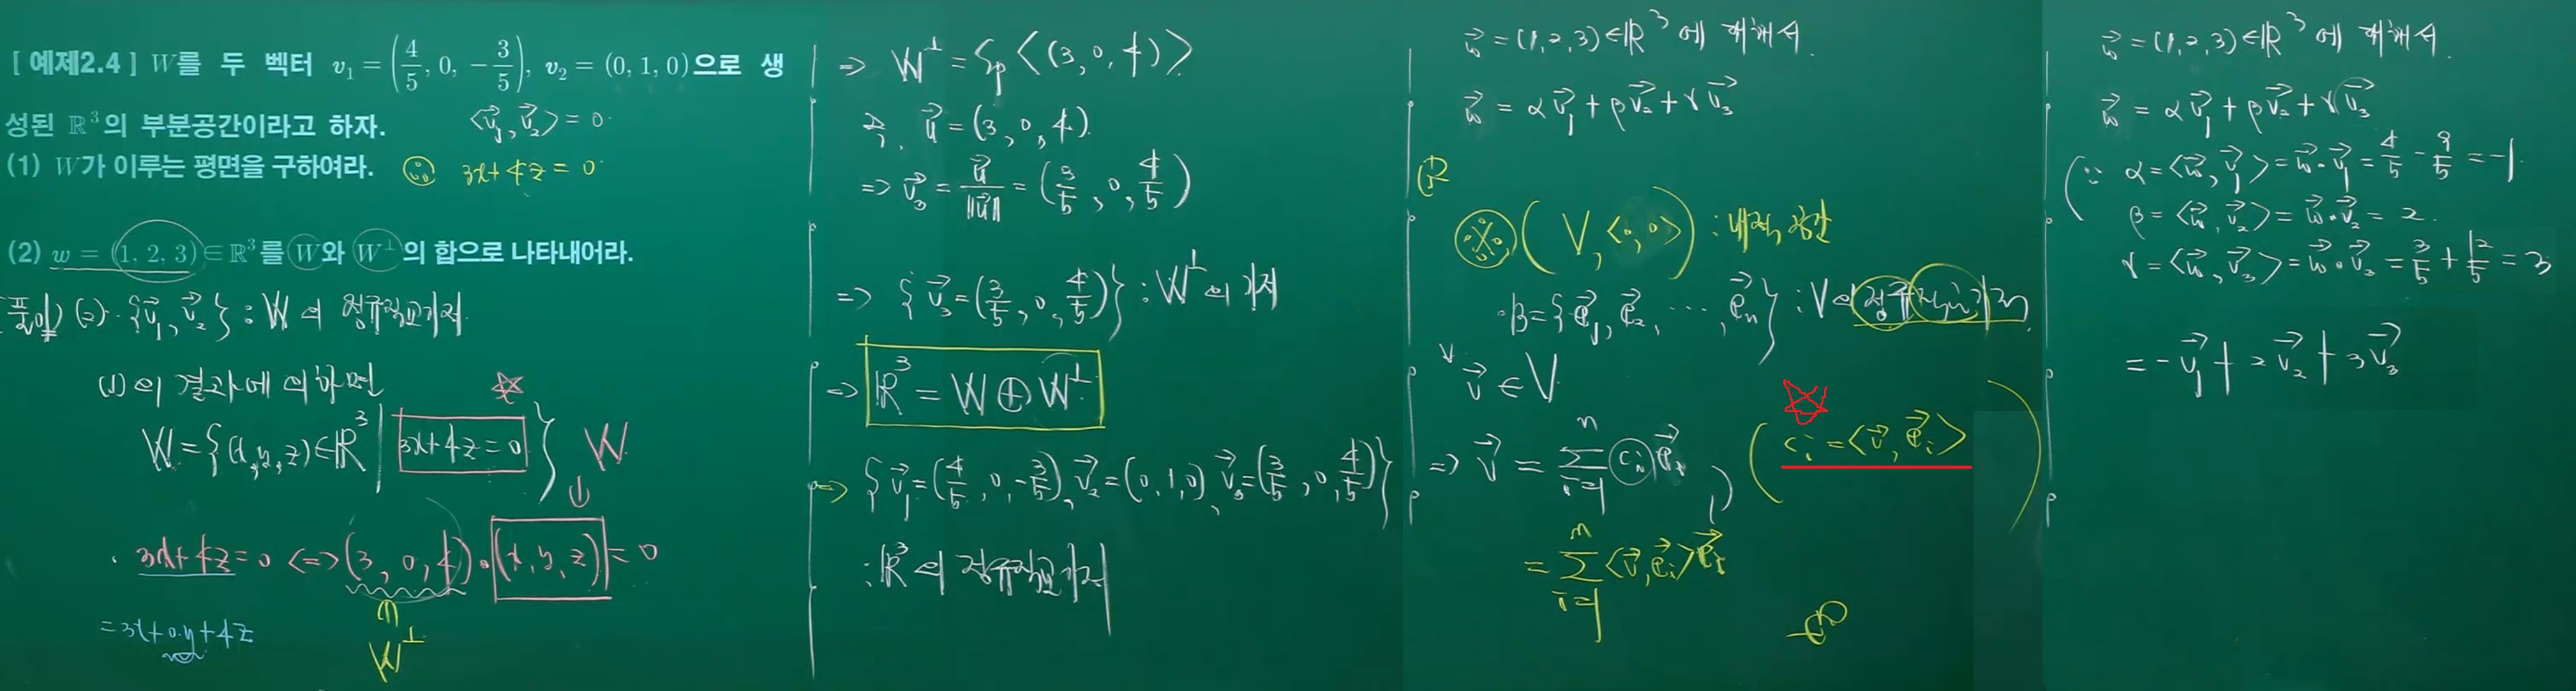 [ 예제2.4 ] W를 두 벡터 v₁ = (4/5, 0, -3/5), v₂ = (0, 1, 0)으로 생
성된 ℝ³의 부분공간이라고 하자. <v₁, v₂> = 0.
(1) W가 이루는 평면을 구하여라. 3x+4z = 0
(2) w = (1, 2, 3)∈ℝ³를 W와 W^⊥의 합으로 나타내어라.
풀이) (2). {v₁, v₂} : W의 정규직교기저.
(1)의 결과에 의하면
W = {(x, y, z)∈ℝ³ | 3x+4z = 0} W
3x+4z = 0 <=> (3, 0, 4)·(x, y, z) = 0
= 3x+0·y+4z
W^⊥
=> W^⊥ = Sp<(3, 0, 4)>
u = (3, 0, 4).
=> v₃ = u/‖u‖ = (3/5, 0, 4/5)
=> {v₃ = (3/5, 0, 4/5)} : W^⊥의 기저
=> ℝ³ = W ⊕ W^⊥
=> {v₁ = (4/5, 0, -3/5), v₂ = (0, 1, 0), v₃ = (3/5, 0, 4/5)}
: ℝ³의 정규직교기저
w = (1, 2, 3)∈ℝ³에 대해서
w = αv₁ + βv₂ + γv₃
※ (V, <·, ·>) : 내적공간
β = {e₁, e₂, ⋯, eₙ} : V의 정규직교기저
∀v ∈ V
=> v = Σ_{i=1}^{n} cᵢeᵢ, (cᵢ = <v, eᵢ>)
= Σ_{i=1}^{n} <v, eᵢ>eᵢ
w = (1, 2, 3)∈ℝ³에 대해서
w = αv₁ + βv₂ + γv₃
(∵ α = <w, v₁> = w·v₁ = 4/5 - 9/5 = -1
β = <w, v₂> = w·v₂ = 2.
γ = <w, v₃> = w·v₃ = 3/5 + 12/5 = 3
= -v₁ + 2v₂ + 3v₃